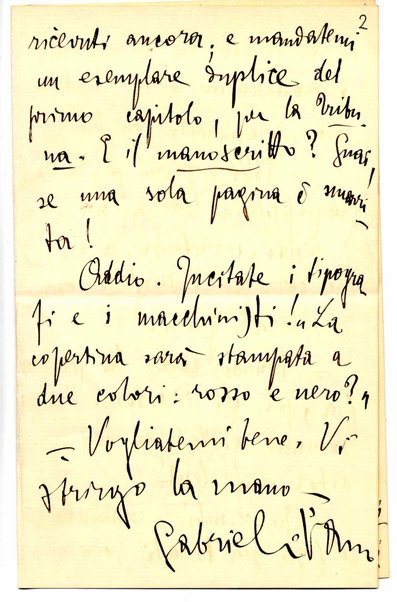 2
ricevuti ancora; e mandatemi
un esemplare duplice del
primo capitolo, per la Tribu-
na. E il manoscritto? Guai,
se una sola pagina è smarri-
ta!
Addio. Incitate i tipogra
fi e i macchinisti! "La
copertina sarà stampata a
due colori: rosso e nero?"
— Vogliatemi bene. Vi
stringo la mano —
Gabriele d'Ann